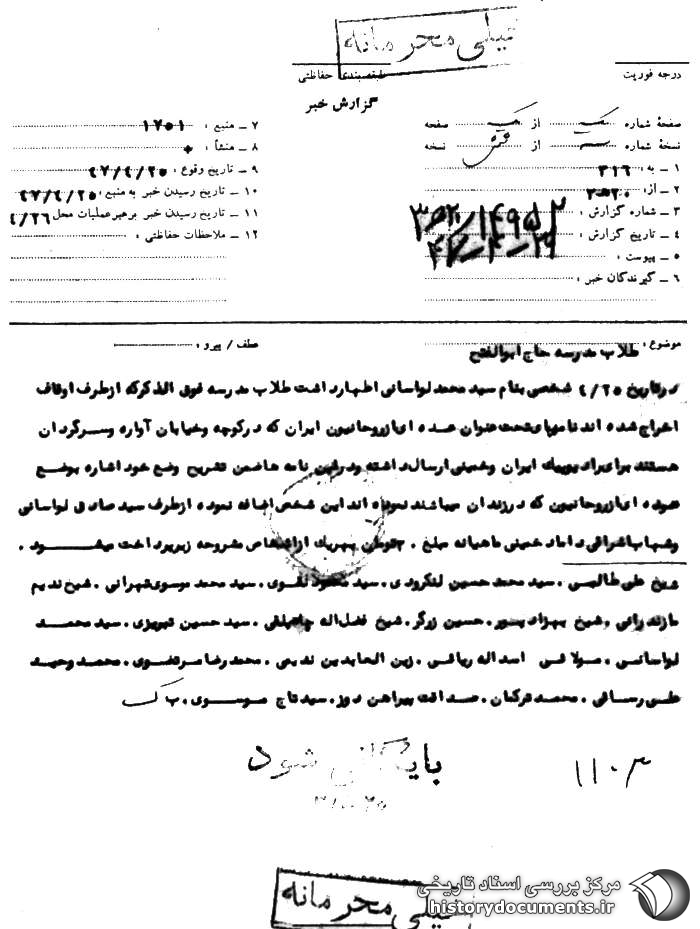 خیلی محرمانه
درجه فوریت
طبقه‌بندی حفاظتی
گزارش خبر
صفحهٔ شماره یک از یک صفحه
نسخهٔ شماره از نسخه
۱ ـ به : ۳۱۶
۲ ـ از : ۲۰ه۳
۳ ـ شماره گزارش :
۴ ـ تاریخ گزارش :
۵ ـ پیوست :
۶ ـ گیرندگان خبر :
۷ ـ منبع : ۱۷۵۱
۸ ـ منشأ :
۹ ـ تاریخ وقوع : ۴۷/۴/۲۵
۱۰ ـ تاریخ رسیدن خبر به منبع : ۴۷/۴/۲۵
۱۱ ـ تاریخ رسیدن خبر برهبر عملیات محل ۴/۲۶
۱۲ ـ ملاحظات حفاظتی :
موضوع : طلاب مدرسه حاج ابوالفتح
عطف / پیرو :
در تاریخ ۴/۲۵ شخصی بنام سید محمد لواسانی اظهار داشت طلاب مدرسه فوق الذکر که از طرف اوقاف
اخراج شده اند نامه‌ای تحت عنوان عده ای از روحانیون ایران که در کوچه و خیابان آواره و سرگردان
هستند برای رادیو پیک ایران و خمینی ارسال داشته و در این نامه ها ضمن تشریح وضع خود اشاره بوضع
عده ای از روحانیون که در زندان میباشند نموده اند این شخص اضافه نموده از طرف سید صادق لواسانی
و شهاب اشراقی داماد خمینی ماهیانه مبلغ تومان بهریک از اشخاص مشروحه زیر پرداخت میشود .
شیخ علی طالبی . سید محمد حسین لنگرودی . سید محمود تقوی . سید محمد موسوی تهرانی . شیخ ندیم
مازندرانی و شیخ بهزاد پور . حسین زرگر . شیخ فضل‌اله . سید حسین تبریزی . سید محمد
لواسانی . مولائی اسداله ریاضی . زین العابدین ندیمی . محمد رضا مرتضوی . محمد وحید
علی رسائی . محمد ترکمان . صداقت پیراهن دوز . سید تاج موسوی .
بایگانی شود
۱۱۰۳
خیلی محرمانه
مرکز بررسی اسناد تاریخی
historydocuments.ir